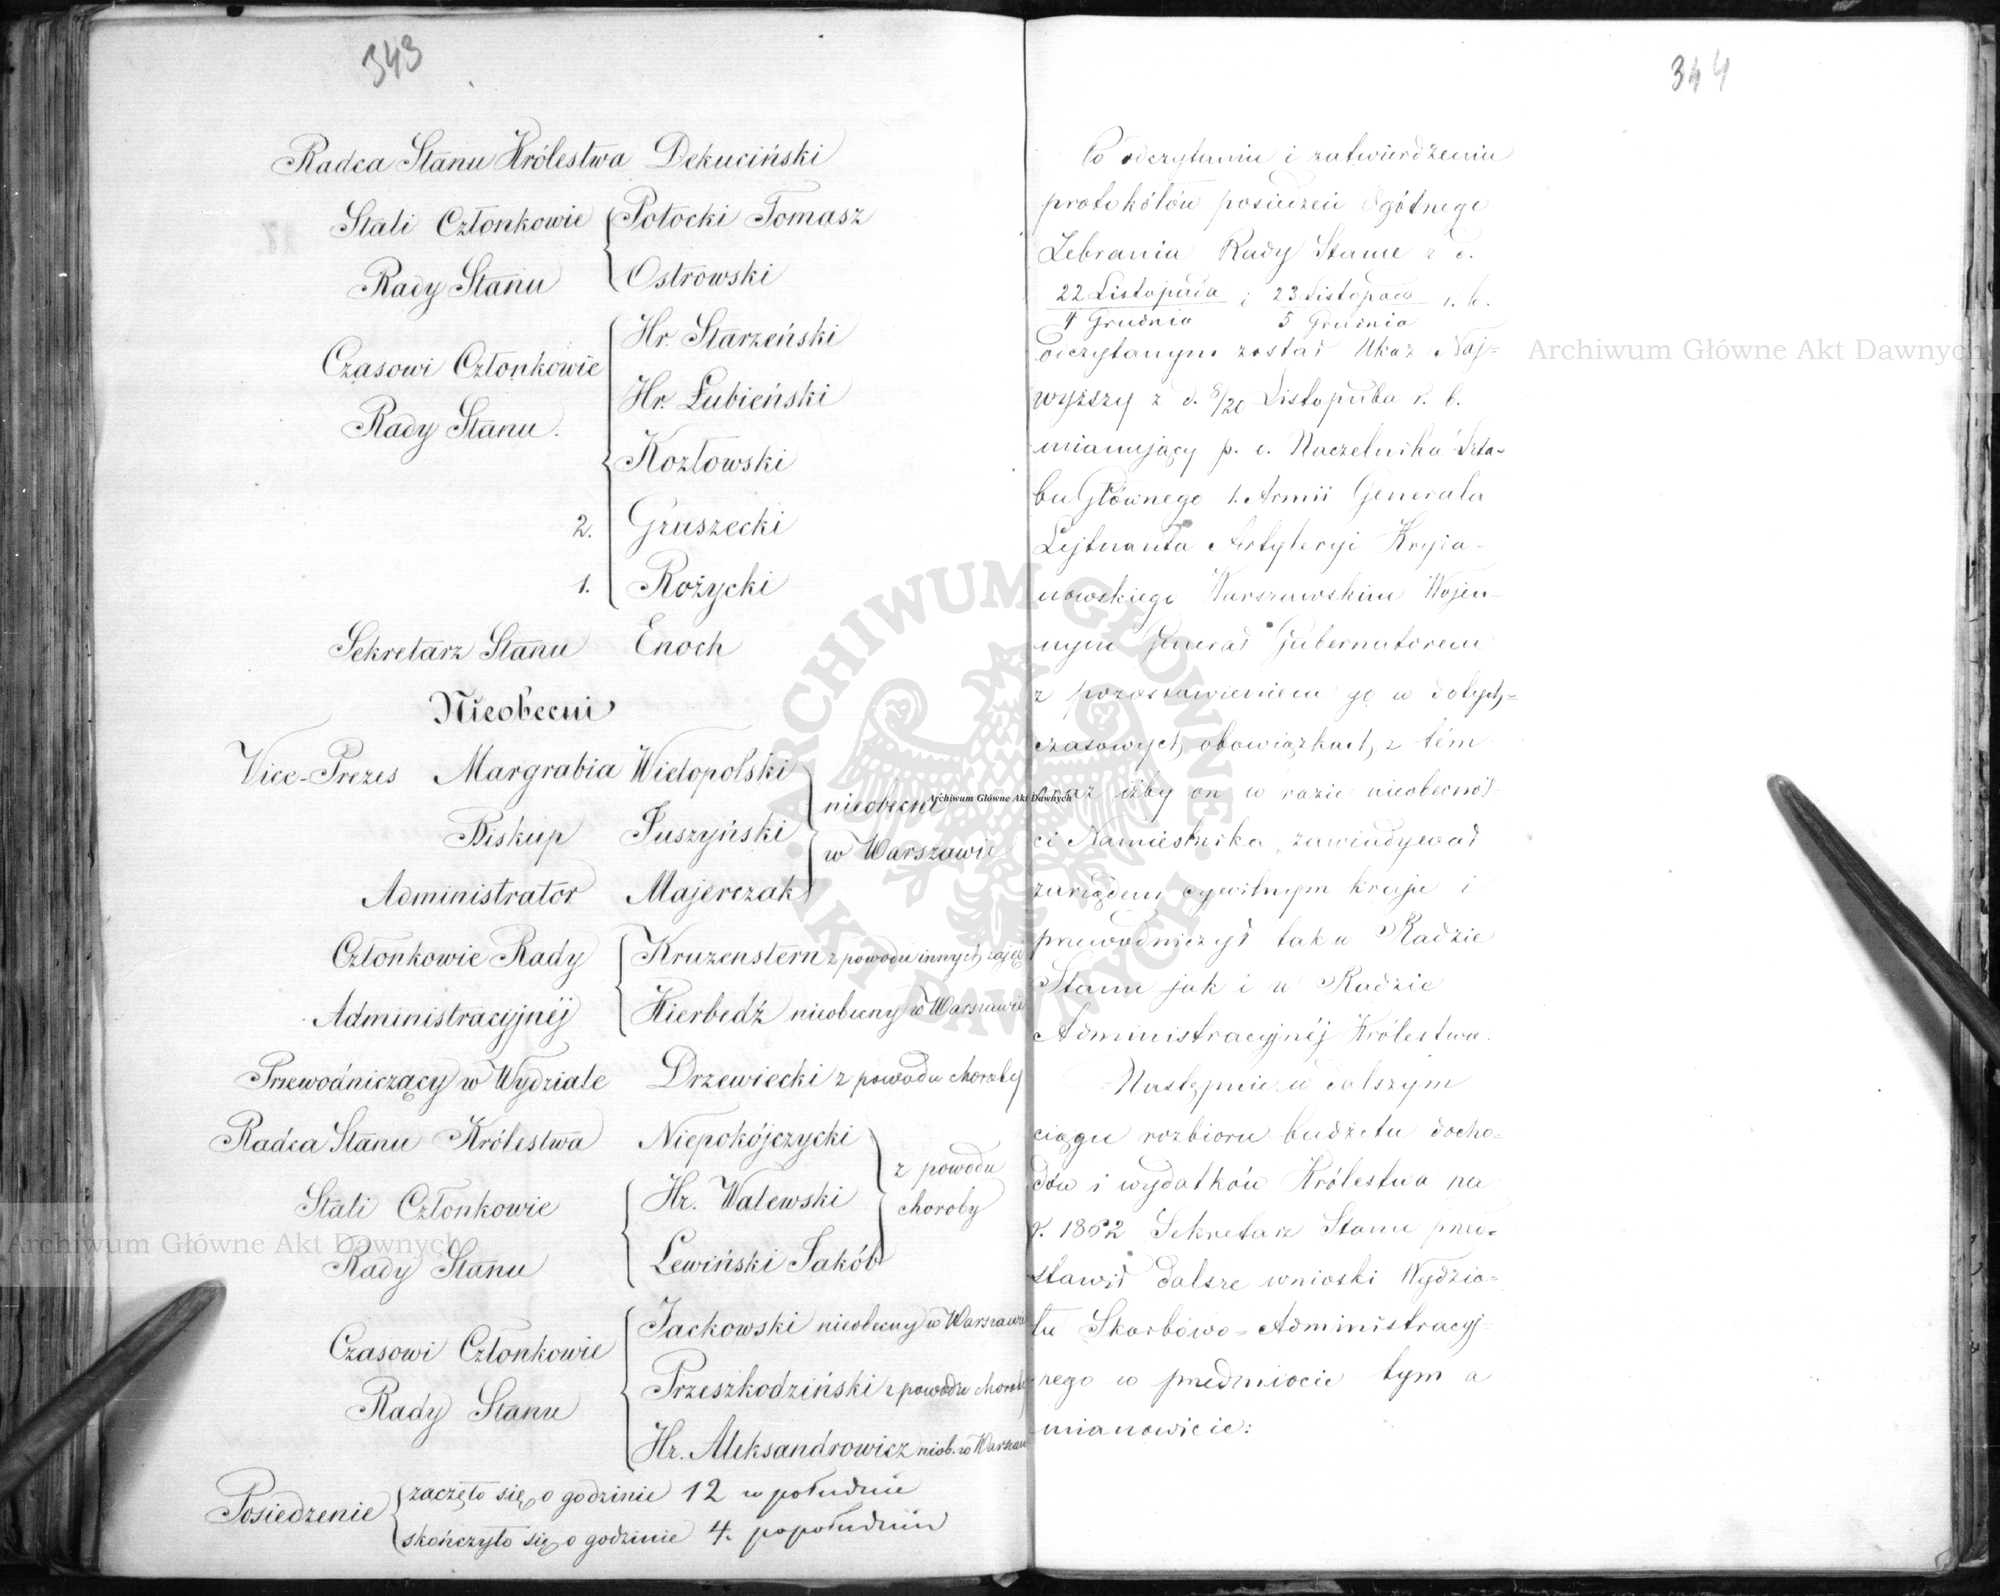 343
Radca Stanu Królestwa Dekuciński
Stali Członkowie Potocki Tomasz
Rady Stanu Ostrowski
Hr. Starzeński
Czasowi Członkowie
Hr. Łubieński
Rady Stanu.
Kozłowski
2. Gruszecki
1. Rożycki
Sekretarz Stanu Enoch
Nieobecni
Vice-Prezes Margrabia Wielopolski
nieobecni
Biskup Juszyński
w Warszawie
Administrator Majerczak
Członkowie Rady Kruzenstern z powodu innych zajęć
Administracyjnéj Kierbedź nieobecny w Warszawie
Przewodniczący w Wydziale Drzewiecki z powodu choroby
Radca Stanu Królestwa Niepokójczycki
z powodu
Stali Członkowie Hr. Walewski
choroby
Rady Stanu Lewiński Jakób
Jackowski nieobecny w Warszawie
Czasowi Członkowie
Przeszkodziński z powodu choroby
Rady Stanu
Hr. Aleksandrowicz nieob. w Warszaw
Posiedzenie zaczęło się o godzinie 12 w południe
skończyło się o godzinie 4. popołudniu
344
Po odczytaniu i zatwierdzeniu
protokółów posiedzeń Ogólnego
Zebrania Rady Stanu z d.
22 Listopada i 23 Listopada r. b.
4 Grudnia 5 Grudnia
odczytanym został Ukaz Naj=
wyższy z d. 8/20 Listopada r. b.
mianujący p. o. Naczelnika Szta-
bu Głównego 1. Armii Generała
Lejtnanta Artyleryi Kryża-
nowskiego Warszawskim Wojen-
nym Generał Gubernatorem
z pozostawieniem go w dotych=
czasowych obowiązkach, z tém
oraz iżby on w razie nieobecnoś-
ci Namiestnika, zawiadywał
zarządem cywilnym kraju i
przewodniczył tak w Radzie
Stanu jak i w Radzie
Administracyjnéj Królestwa.
Następnie w dalszym
ciągu rozbioru budżetu docho=
dów i wydatków Królestwa na
r. 1862 Sekretarz Stanu przed=
stawił dalsze wnioski Wydzia=
łu Skarbowo=Administracyj-
nego w przedmiocie tym a
mianowicie:
Archiwum Główne Akt Dawnych
Archiwum Główne Akt Dawnych
Archiwum Główne Akt Dawnych
ARCHIWUM GŁÓWNE
AKT DAWNYCH